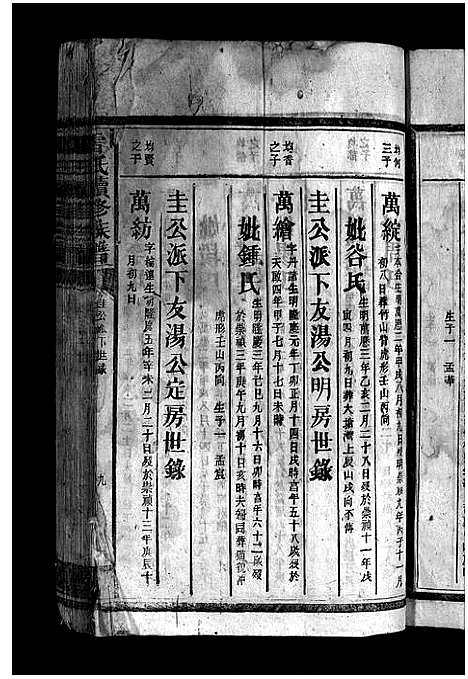 均何
三子
萬綻
字本台生明萬曆二年甲戌八月初九日歿明崇禎九年丙子十一月
初八日葬竹山背虎形壬山丙向
妣谷氏
生明萬曆三年乙亥二月二十八日歿於崇禎十一年戊
寅四月初九日葬大
圭公派下友湯公明房世錄
均香
之子
萬繪
字丹
生明隆慶元年丁卯正月十四日戌時享年五十八歲歿於
天啟四年甲子七月十七日未時
妣鍾氏
生明隆慶三年己巳九月十六日卯時享年六十二歲歿
於崇禎三年庚午九月初十日亥時夫婦同葬
虎形壬山丙向
生子一
孟
圭公派下友湯公定房世錄
均賢
之子
萬紡
生明隆慶五年辛未二月二十日歿於崇禎十三年庚辰十
月初九日
氏續修族譜
圭公派下世錄
九
生子一
孟